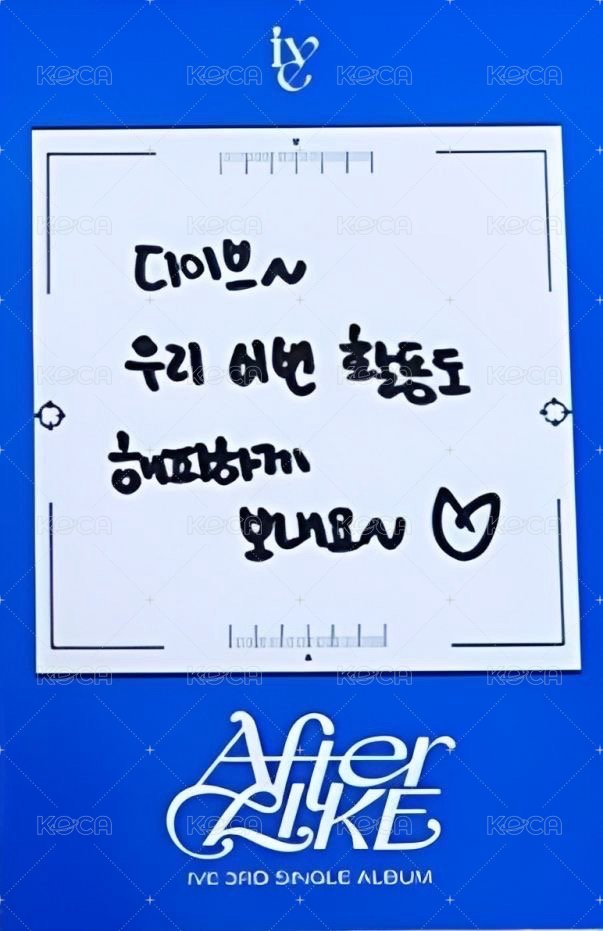 IVE
다이브~
우리 이번 활동도
해피하게
보내요~ ♡
After
LIKE
IVE 3RD SINGLE ALBUM
KOCA